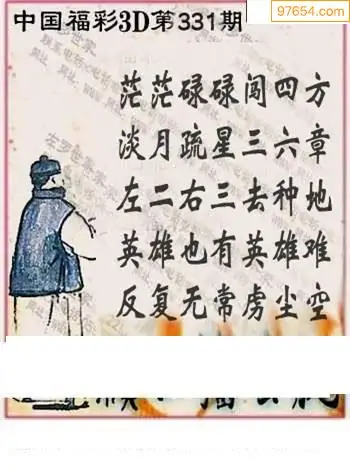 97654.com
中国福彩3D第331期
茫茫碌碌闯四方
淡月疏星三六章
左二右三去种地
英雄也有英雄难
反复无常虏尘空